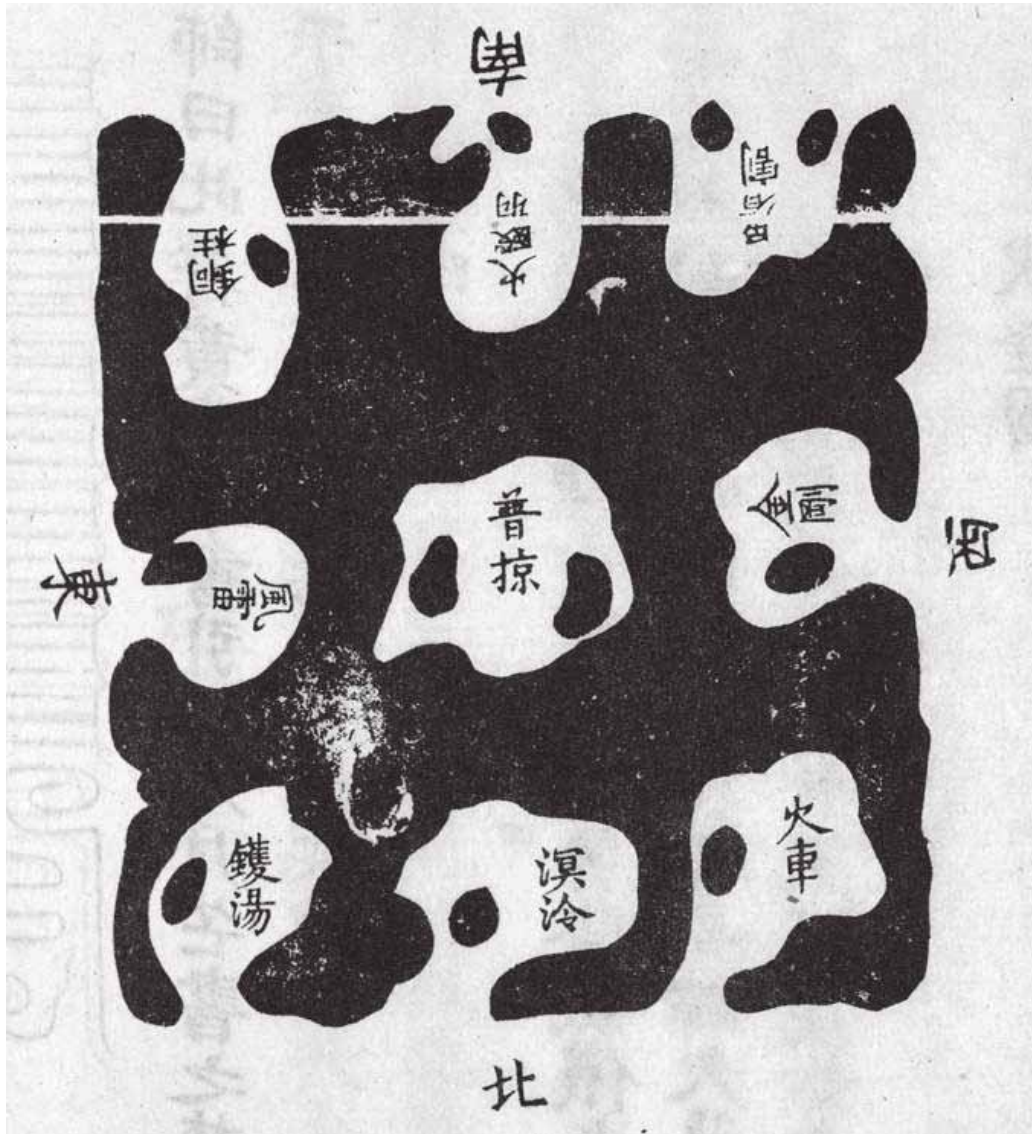 南
銅柱
火翳
屠割
東
風雷
普掠
金剛
西
鑊湯
溟泠
火車
北